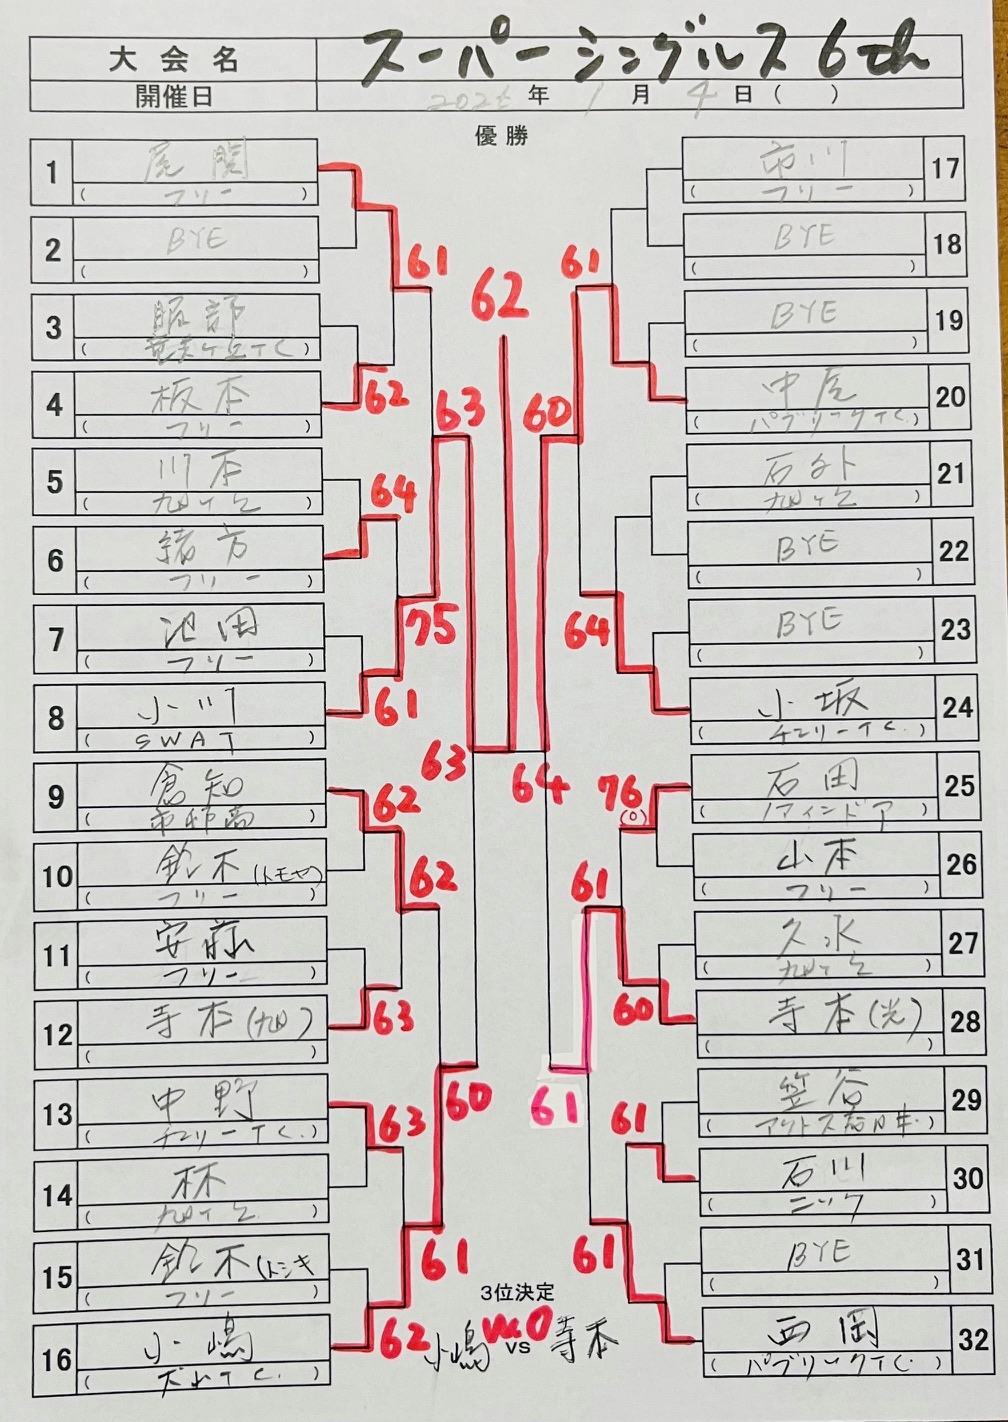 大会名 スーパーシングルス 6th
開催日 2026年 1月 4日 ( )
優勝
1 尾関
( フリー )
2 BYE
( )
3 服部
( TC )
4 板本
( フリー )
5 川本
( )
6 緒方
( フリー )
7 池田
( フリー )
8 小川
( SWAT )
9 倉知
( )
10 鈴木 (トモヤ)
( フリー )
11 安藤
( フリー )
12 寺本 ( )
( )
13 中野
( チェリーTC. )
14 林
( )
15 鈴木 (トシキ
( フリー )
16 小嶋
( TC. )
17 市川
( フリー )
18 BYE
( )
19 BYE
( )
20 中尾
( パブリックTC. )
21 石外
( )
22 BYE
( )
23 BYE
( )
24 小坂
( チェリーTC. )
25 石田
( ノアインドア )
26 山本
( フリー )
27 久永
( )
28 寺本(光)
( )
29 笠谷
( )
30 石川
( ニック )
31 BYE
( )
32 西岡
( パブリックTC. )
61
62
63
64
75
61
62
62
63
63
60
63
61
62
62
61
60
64
64
76
(0)
61
60
61
61
61
3位決定
小嶋 w.o vs 寺本